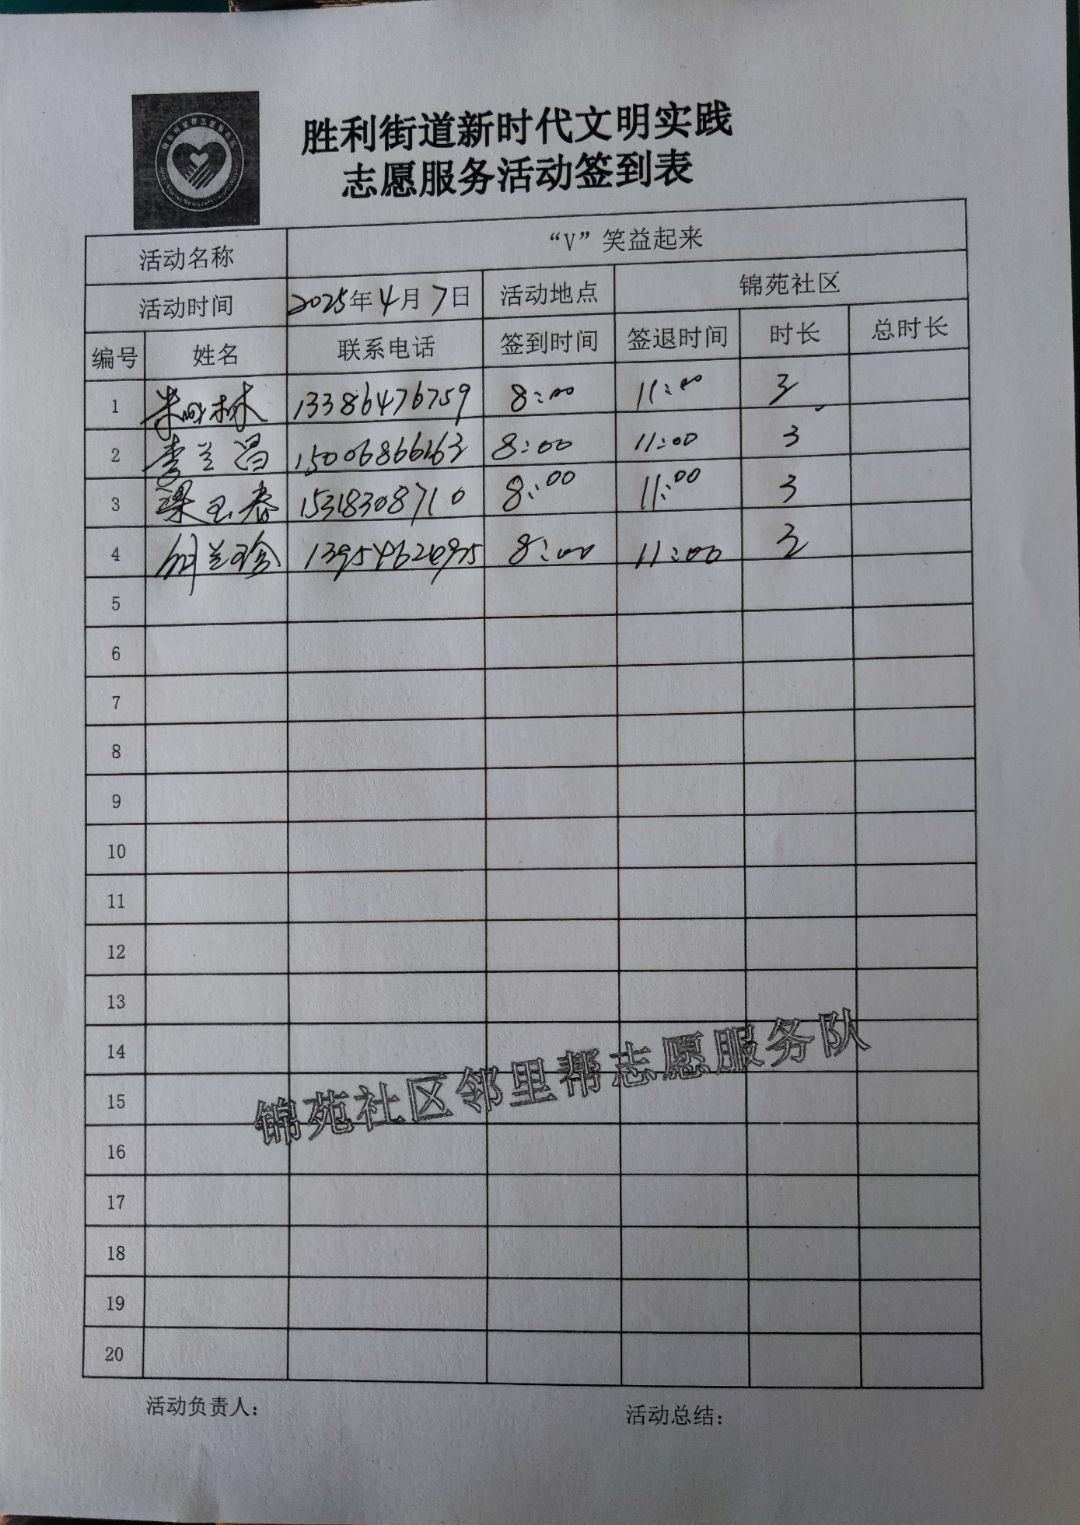 胜利街道新时代文明实践
志愿服务活动签到表
活动名称 “V”笑益起来
活动时间 2025年4月7日 活动地点 锦苑社区
编号 姓名 联系电话 签到时间 签退时间 时长 总时长
1 林 13386476759 8:00 11:00 3
2 李兰昌 15006866263 8:00 11:00 3
3 梁玉春 15318308710 8:00 11:00 3
4 兰珍 8:00 11:00 3
5
6
7
8
9
10
11
12
13
14
15
16
17
18
19
20
锦苑社区邻里帮志愿服务队
活动负责人: 活动总结: